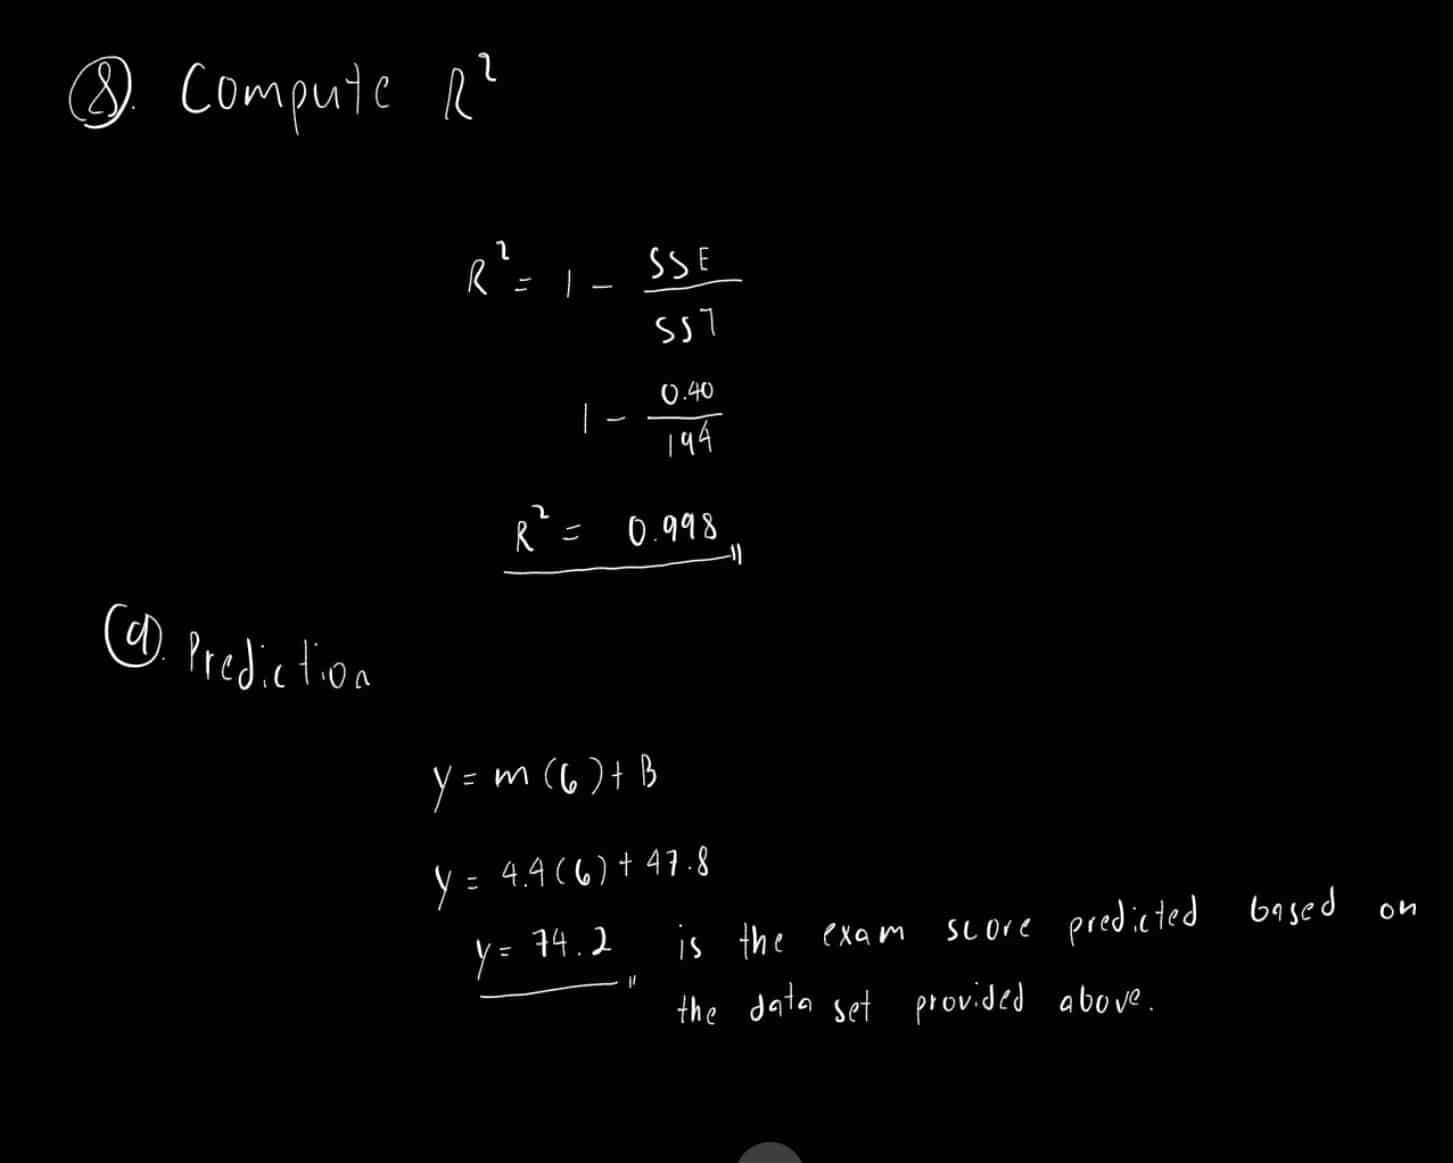 ⑧. Compute R²
R² = 1 - SSE
SST
1 - 0.40
194
R² = 0.998
⑨. Prediction
y = m(6) + B
y = 4.4(6) + 47.8
y = 74.2 is the exam score predicted based on
the data set provided above.